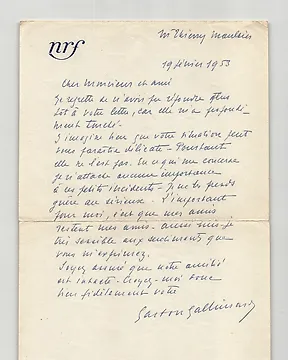 nrf
Mr Thierry Maulnier
19 février 1953
Cher Monsieur et ami
Je regrette de n'avoir pu répondre plus
tôt à votre lettre, car elle m'a profondé-
ment touché.
J'imagine bien que votre situation peut
vous paraître délicate. Pourtant
elle ne l'est pas. En ce qui me concerne
je n'attache aucune importance
à ces petits incidents. Je ne les prends
guère au sérieux. L'important
pour moi, c'est que mes amis
restent mes amis. Aussi suis-je
très sensible aux sentiments que
vous m'exprimez.
Soyez assuré que notre amitié
est intacte. Croyez-moi donc
bien fidèlement votre
Gaston Gallimard